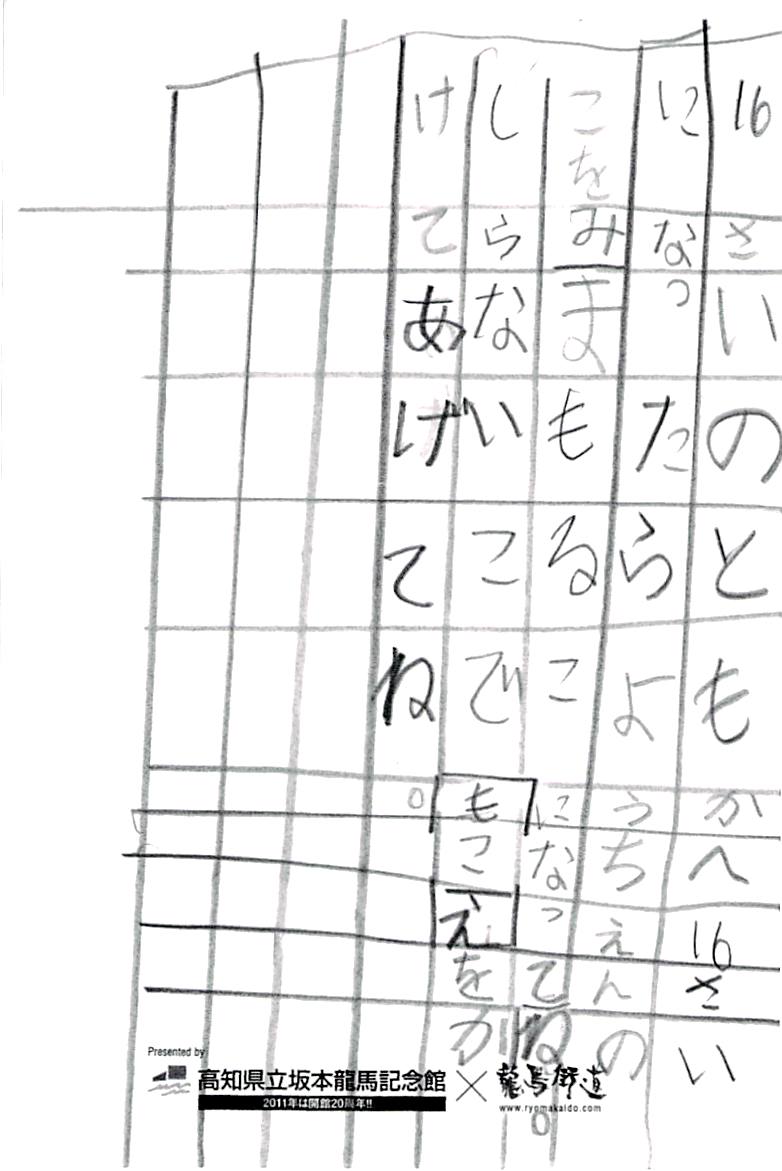 16さいのともかへ16さい
になったらようちえんの
こをみまもるこになってね。
しらないこでもこえをか
けてあげてね。
Presented by
高知県立坂本龍馬記念館×龍馬街道
2011年は開館20周年!!
www.ryomakaido.com